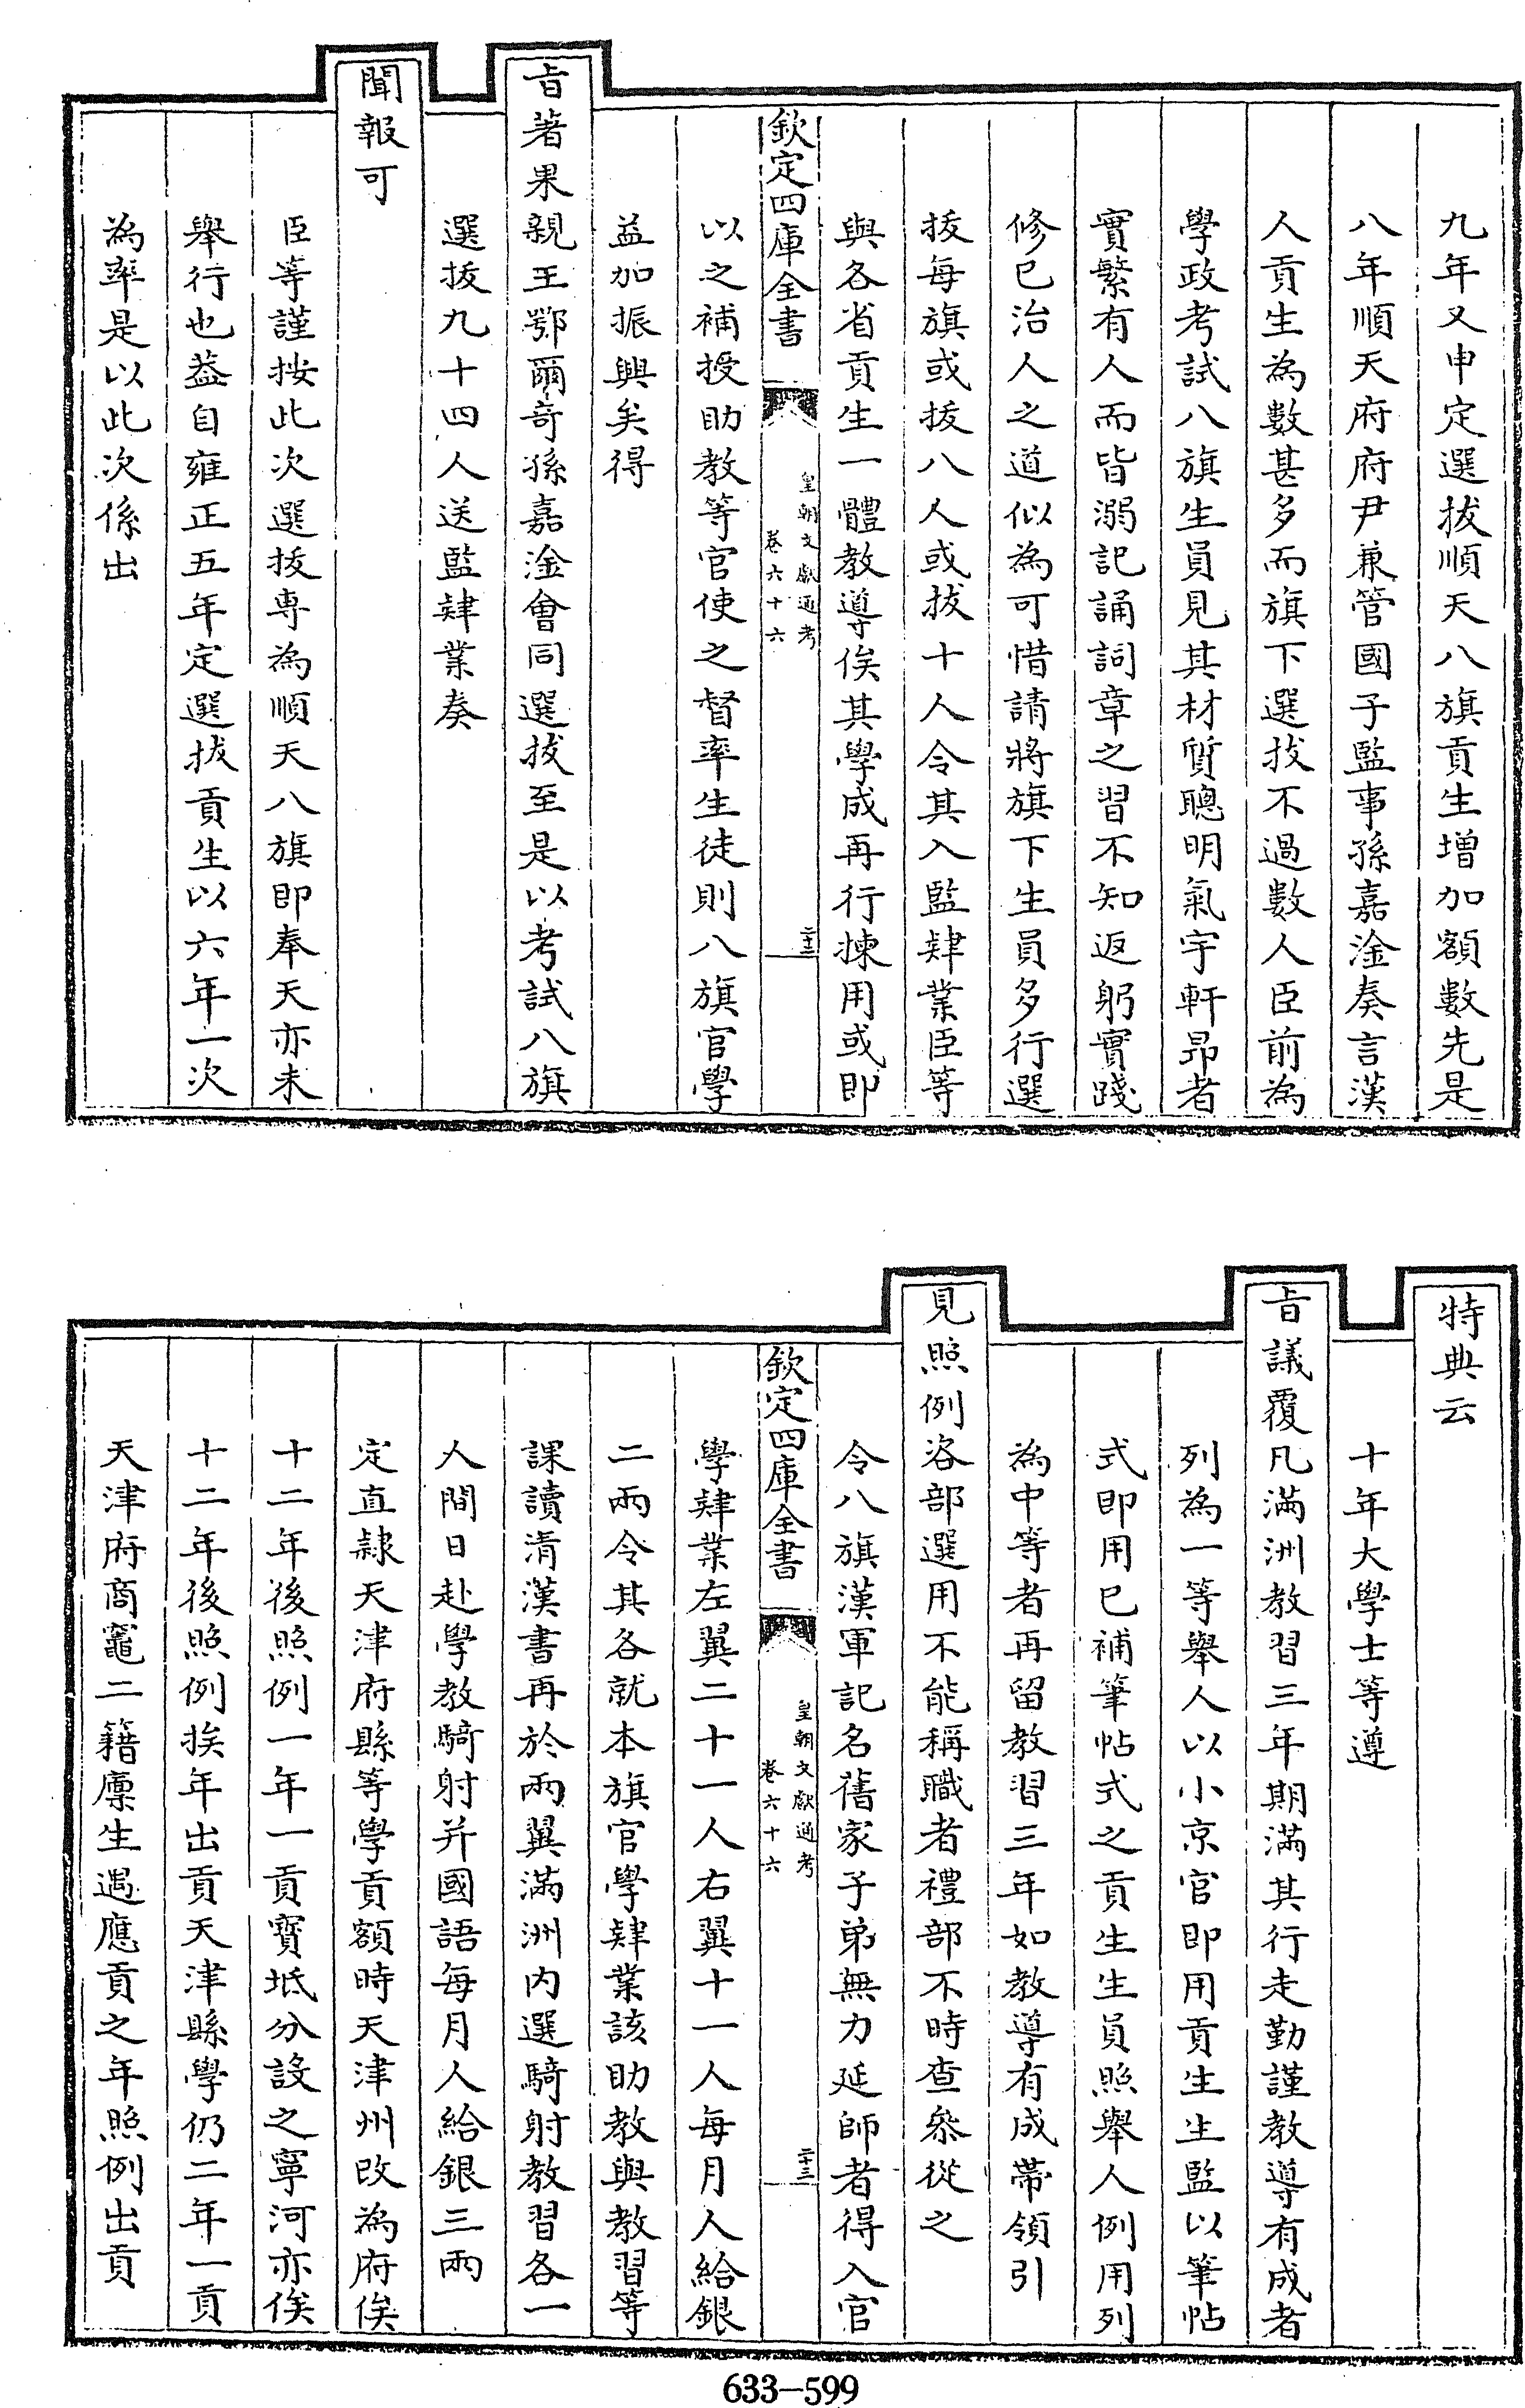 九年又申定選拔順天八旗貢生增加額數先是
八年順天府府尹兼管國子監事孫嘉淦奏言漢
人貢生為數甚多而旗下選拔不過數人臣前為
學政考試八旗生員見其材質聰明氣宇軒昂者
實繁有人而皆溺記誦詞章之習不知返躬實踐
修己治人之道似為可惜請將旗下生員多行選
拔每旗或拔八人或拔十人令其入監肄業臣等
與各省貢生一體教導俟其學成再行揀用或即
欽定四庫全書
皇朝文獻通考
卷六十六
二十三
以之補授助教等官使之督率生徒則八旗官學
益加振興矣得
旨著果親王鄂爾奇孫嘉淦會同選拔至是以考試八旗
選拔九十四人送監肄業奏
聞報可
臣等謹按此次選拔專為順天八旗即奉天亦未
舉行也葢自雍正五年定選拔貢生以六年一次
為率是以此次係出
特典云
十年大學士等遵
旨議覆凡滿洲教習三年期滿其行走勤謹教導有成者
列為一等舉人以小京官即用貢生生監以筆帖
式即用已補筆帖式之貢生生員照舉人例用列
為中等者再留教習三年如教導有成帶領引
見照例咨部選用不能稱職者禮部不時查叅從之
令八旗漢軍記名舊家子弟無力延師者得入官
欽定四庫全書
皇朝文獻通考
卷六十六
二十三
學肄業左翼二十一人右翼十一人每月人給銀
二兩令其各就本旗官學肄業該助教與教習等
課讀清漢書再於兩翼滿洲內選騎射教習各一
人間日赴學教騎射并國語每月人給銀三兩
定直隸天津府縣等學貢額時天津州改為府俟
十二年後照例一年一貢寶坻分設之寧河亦俟
十二年後照例挨年出貢天津縣學仍二年一貢
天津府商竈二籍廩生遇應貢之年照例出貢
633-599